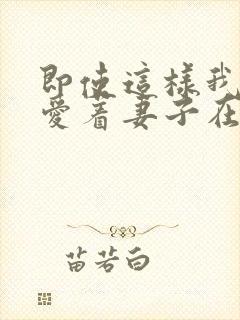 即使這樣我
愛着妻子在
苗若白